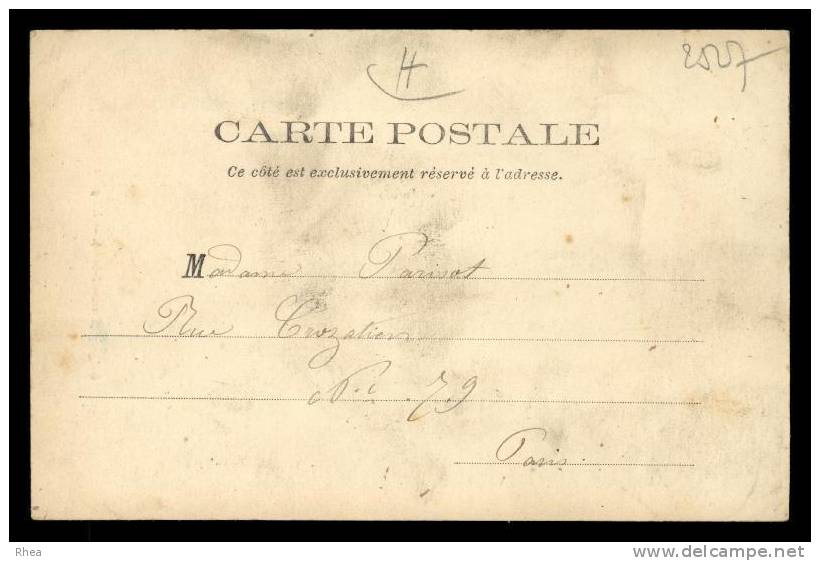 H
CARTE POSTALE
Ce côté est exclusivement réservé à l'adresse.
Madame Parisot
Rue Crozatier
No. 79
Paris
Rhea
www.delcampe.net